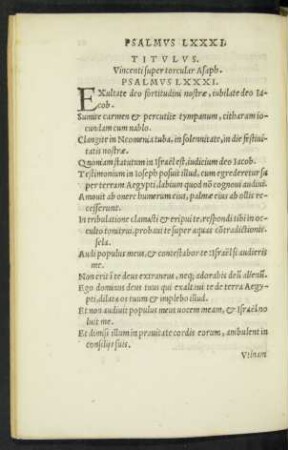 PSALMVS LXXXI.
TITVLVS.
Vincenti super torcular Asaph.
PSALMVS LXXXI.
EXultate deo fortitudini nostræ, iubilate deo Ia-
cob.
Sumite carmen & percutite tympanum, citharam io-
cundam cum nablo.
Clangite in Neomenia tuba, in solennitate, in die festiui-
tatis nostræ.
Quoniam statutum in Israël est, iudicium deo Iacob.
Testimonium in Ioseph posuit illud, cum egrederetur su-
per terram Aegypti, labium quod nō cognoui audiui.
Amoui ab onere humerum eius, palmæ eius ab ollis re-
cesserunt.
In tribulatione clamasti & eripui te, respondi tibi in occul-
to tonitrui, probaui te super aquas cōtradictionis.
sela.
Audi populus meus, & contestabor te Israël si audieris
me.
Non erit ī te deus extraneus, neq; adorabis deū alienū.
Ego dominus deus tuus qui exaltaui te de terra Aegy-
pti, dilata os tuum & implebo illud.
Et non audiuit populus meus uocem meam, & Israël no
luit me.
Et dimisi illum in prauitate cordis eorum, ambulent in
consilijs suis.
Vtinam